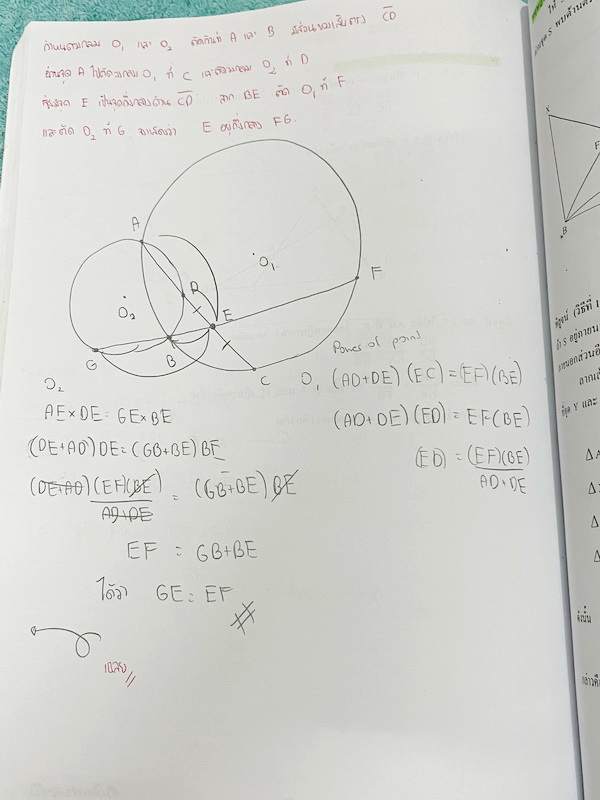 กำหนดวงกลม O₁ และ O₂ ตัดกันที่ A และ B มีส่วนของเส้นตรง CD
ผ่านจุด A ไปตัดวงกลม O₁ ที่ C และตัดวงกลม O₂ ที่ D
E เป็นจุดกึ่งกลางด้าน CD ลาก BE ตัด O₁ ที่ F
และตัด O₂ ที่ G จงแสดงว่า E อยู่กึ่งกลาง FG.
A
O₁
F
D
O₂
E
B
G
C
Power of point
O₁ (AD+DE)(EC)=(EF)(BE)
(AD+DE)(ED) = EF(BE)
(ED) = (EF)(BE)
AD+DE
O₂
AE×DE = GE×BE
(DE+AD)DE = (GB+BE)BE
(DE+AD)(EF)(BE) = (GB+BE)BE
AD+DE
EF = GB+BE
ได้ว่า GE = EF
#
เฉลย //
X
F
B
พิสูจน์ (วิธีที่ 1
ที่จุด Y และ
Δ A
Δ
Δ
Δ
ดังนั้น